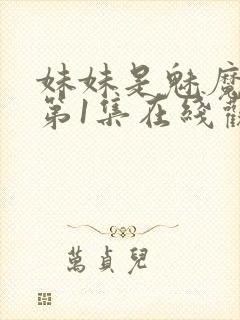 妹妹是魅魔
第1集在綫觀
萬貞兒